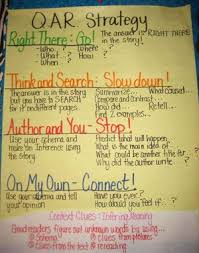 QAR Strategy
Right There: Go!
The answer is RIGHT THERE in the story!
-Who... -Where
-What... -When
-How
Think and Search: Slow down!
The answer is in the story
but you have to SEARCH
for it in different pages.
Summarize... What caused...
Compare and Contrast...
How did... Retell...
Find 2 examples...
Author and You - Stop!
Use your schema and
make an inference using
the story.
Predict what will happen.
What is the main idea of
What could be another title for
Why did the author write
On My Own - Connect!
Use your schema and tell
your opinion
Have you ever?
How would you feel if..?
Context Clues: Inferring Meaning
Good readers figure out unknown words by using...
schema clues from pictures
clues from the text rereading